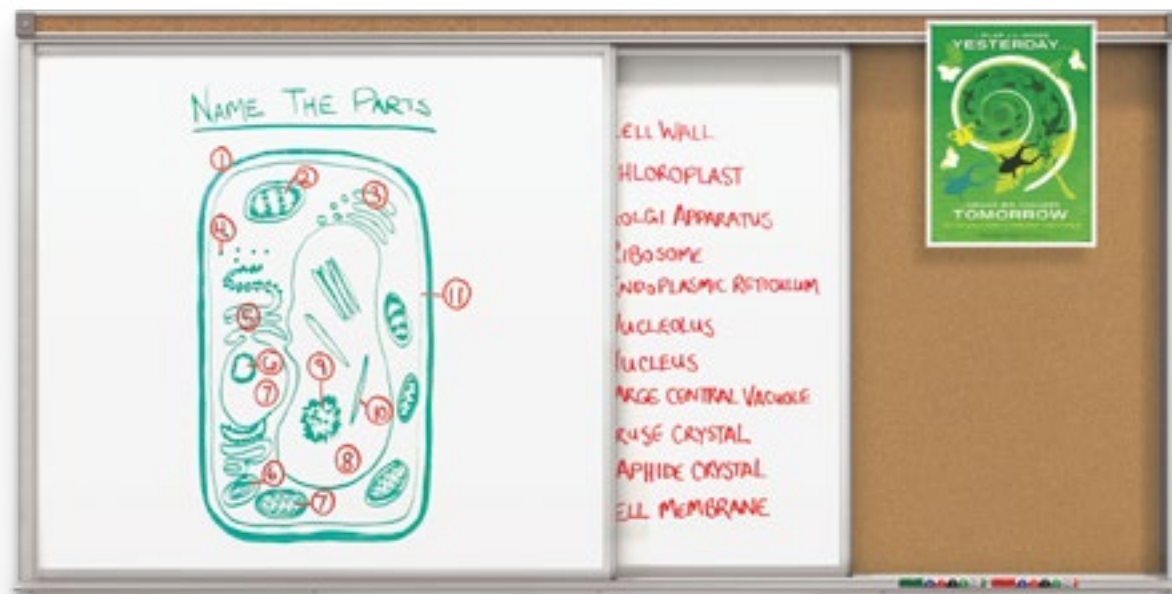 NAME THE PARTS
1
2
3
4
5
6
7
9
10
8
11
6
7
ELL WALL
HLOROPLAST
OLGI APPARATUS
RIBOSOME
ENDOPLASMIC RETICULUM
NUCLEOLUS
NUCLEUS
ARGE CENTRAL VACUOLE
RUSE CRYSTAL
APHIDE CRYSTAL
ELL MEMBRANE
YESTERDAY
TOMORROW